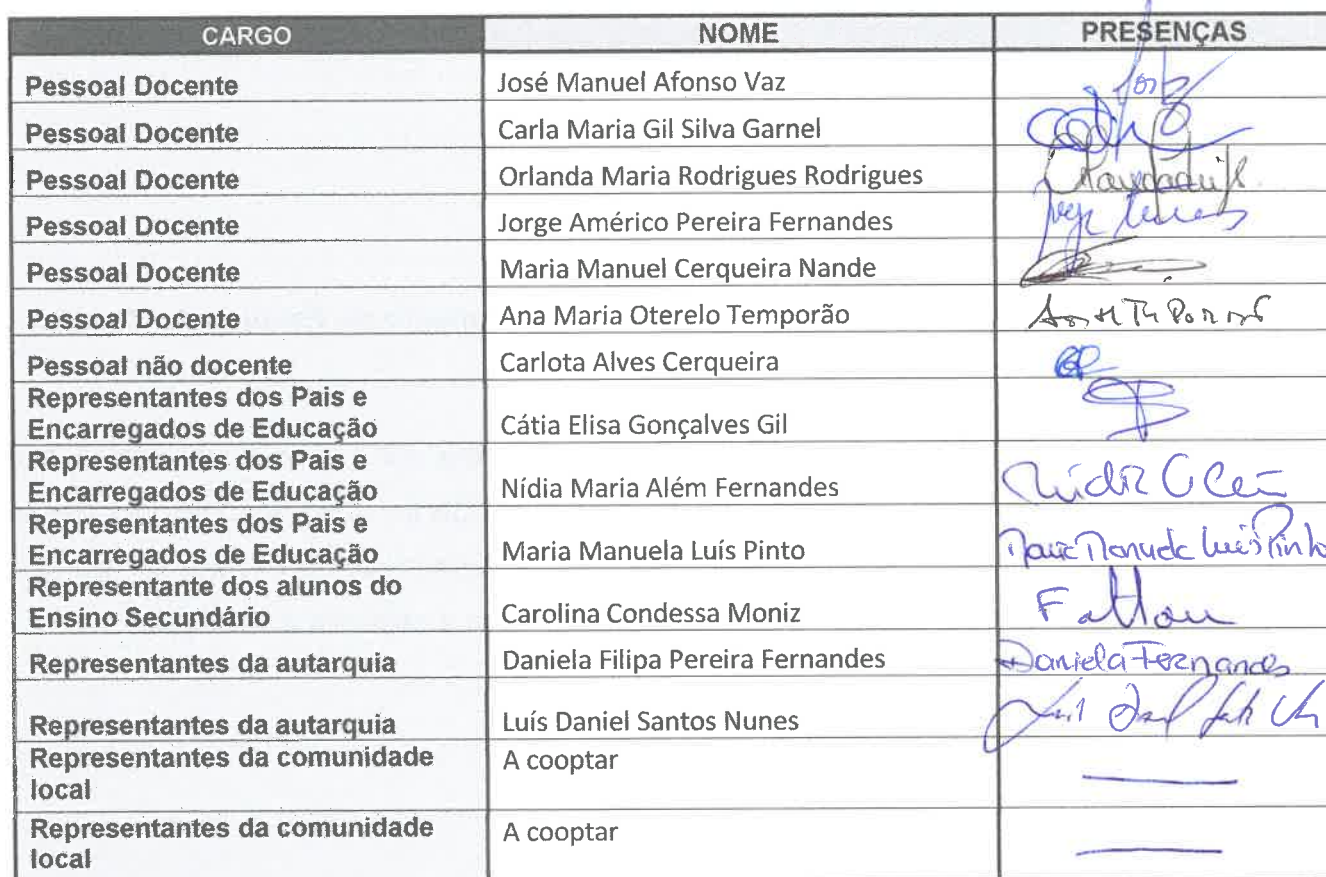 CARGO NOME PRESENÇAS
Pessoal Docente José Manuel Afonso Vaz
Pessoal Docente Carla Maria Gil Silva Garnel
Pessoal Docente Orlanda Maria Rodrigues Rodrigues
Pessoal Docente Jorge Américo Pereira Fernandes
Pessoal Docente Maria Manuel Cerqueira Nande
Pessoal Docente Ana Maria Oterelo Temporão
Pessoal não docente Carlota Alves Cerqueira
Representantes dos Pais e
Encarregados de Educação Cátia Elisa Gonçalves Gil
Representantes dos Pais e
Encarregados de Educação Nídia Maria Além Fernandes
Representantes dos Pais e
Encarregados de Educação Maria Manuela Luís Pinto Maria Manuela Luís Pinto
Representante dos alunos do
Ensino Secundário Carolina Condessa Moniz Faltou
Representantes da autarquia Daniela Filipa Pereira Fernandes Daniela Fernandes
Representantes da autarquia Luís Daniel Santos Nunes
Representantes da comunidade A cooptar
local
Representantes da comunidade A cooptar
local